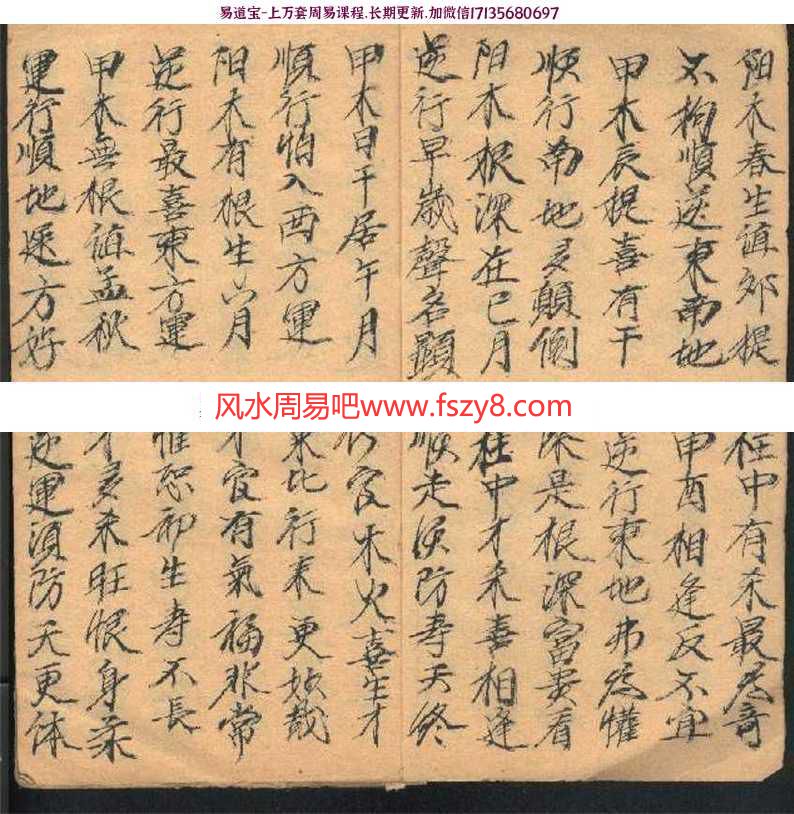 易道宝-上万套周易课程.长期更新.加微信17135680697
阳木春生值卯提
不拘順逆東南地
甲木辰提喜有干
順行南地多顛倒
阳木根深在巳月
逆行早歲聲名顯
甲木日干居午月
順行怕入西方運
阳木有根生六月
逆行最喜東方運
甲木無根值孟秋
運行順地逐方好
风水周易吧www.fszy8.com
柱中有杀最为奇
申酉相逢反不宜
逆行東地弗为懼
深是根深富贵看
柱中才杀喜相逢
順走須防寿夭终
官木火喜生才
比行来更妙哉
才官有氣福非常
惟恐卯生寿不長
才多杀旺恨身柔
逆運須防夭更体